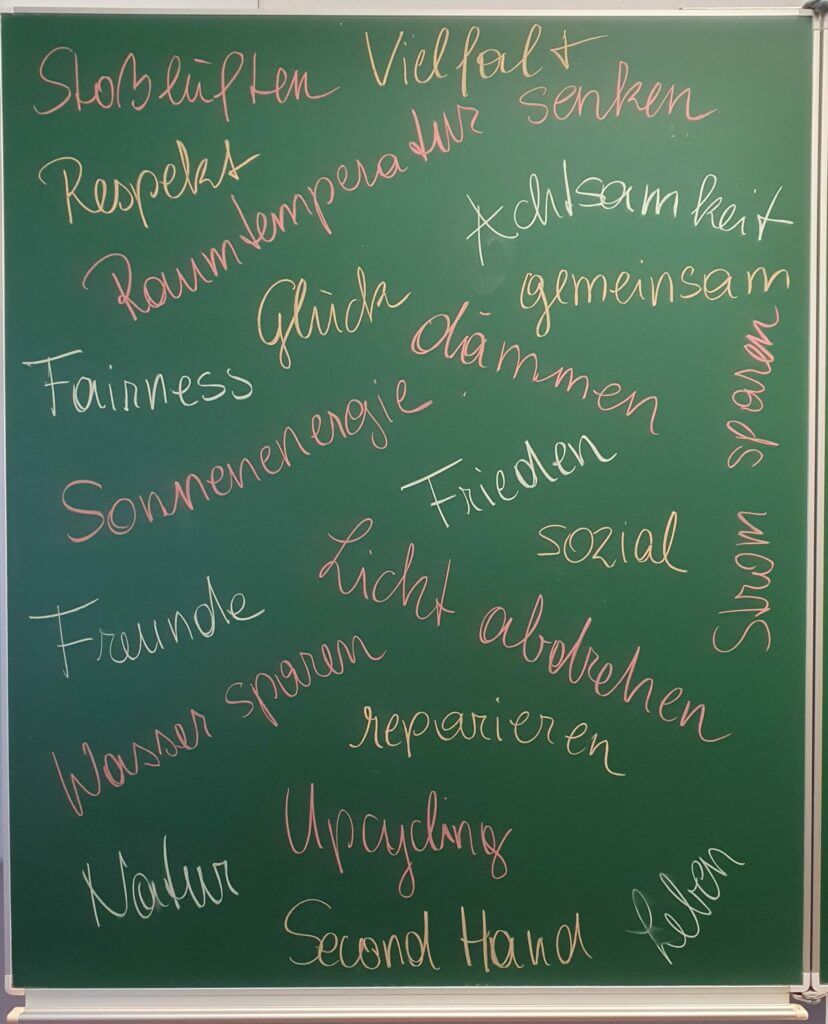 Stoßlüften
Vielfalt
Respekt
Raumtemperatur senken
Achtsamkeit
Glück
gemeinsam
dämmen
Fairness
Strom sparen
Sonnenenergie
Frieden
sozial
Licht abdrehen
Freunde
Wasser sparen
reparieren
Upcycling
Natur
Leben
Second Hand